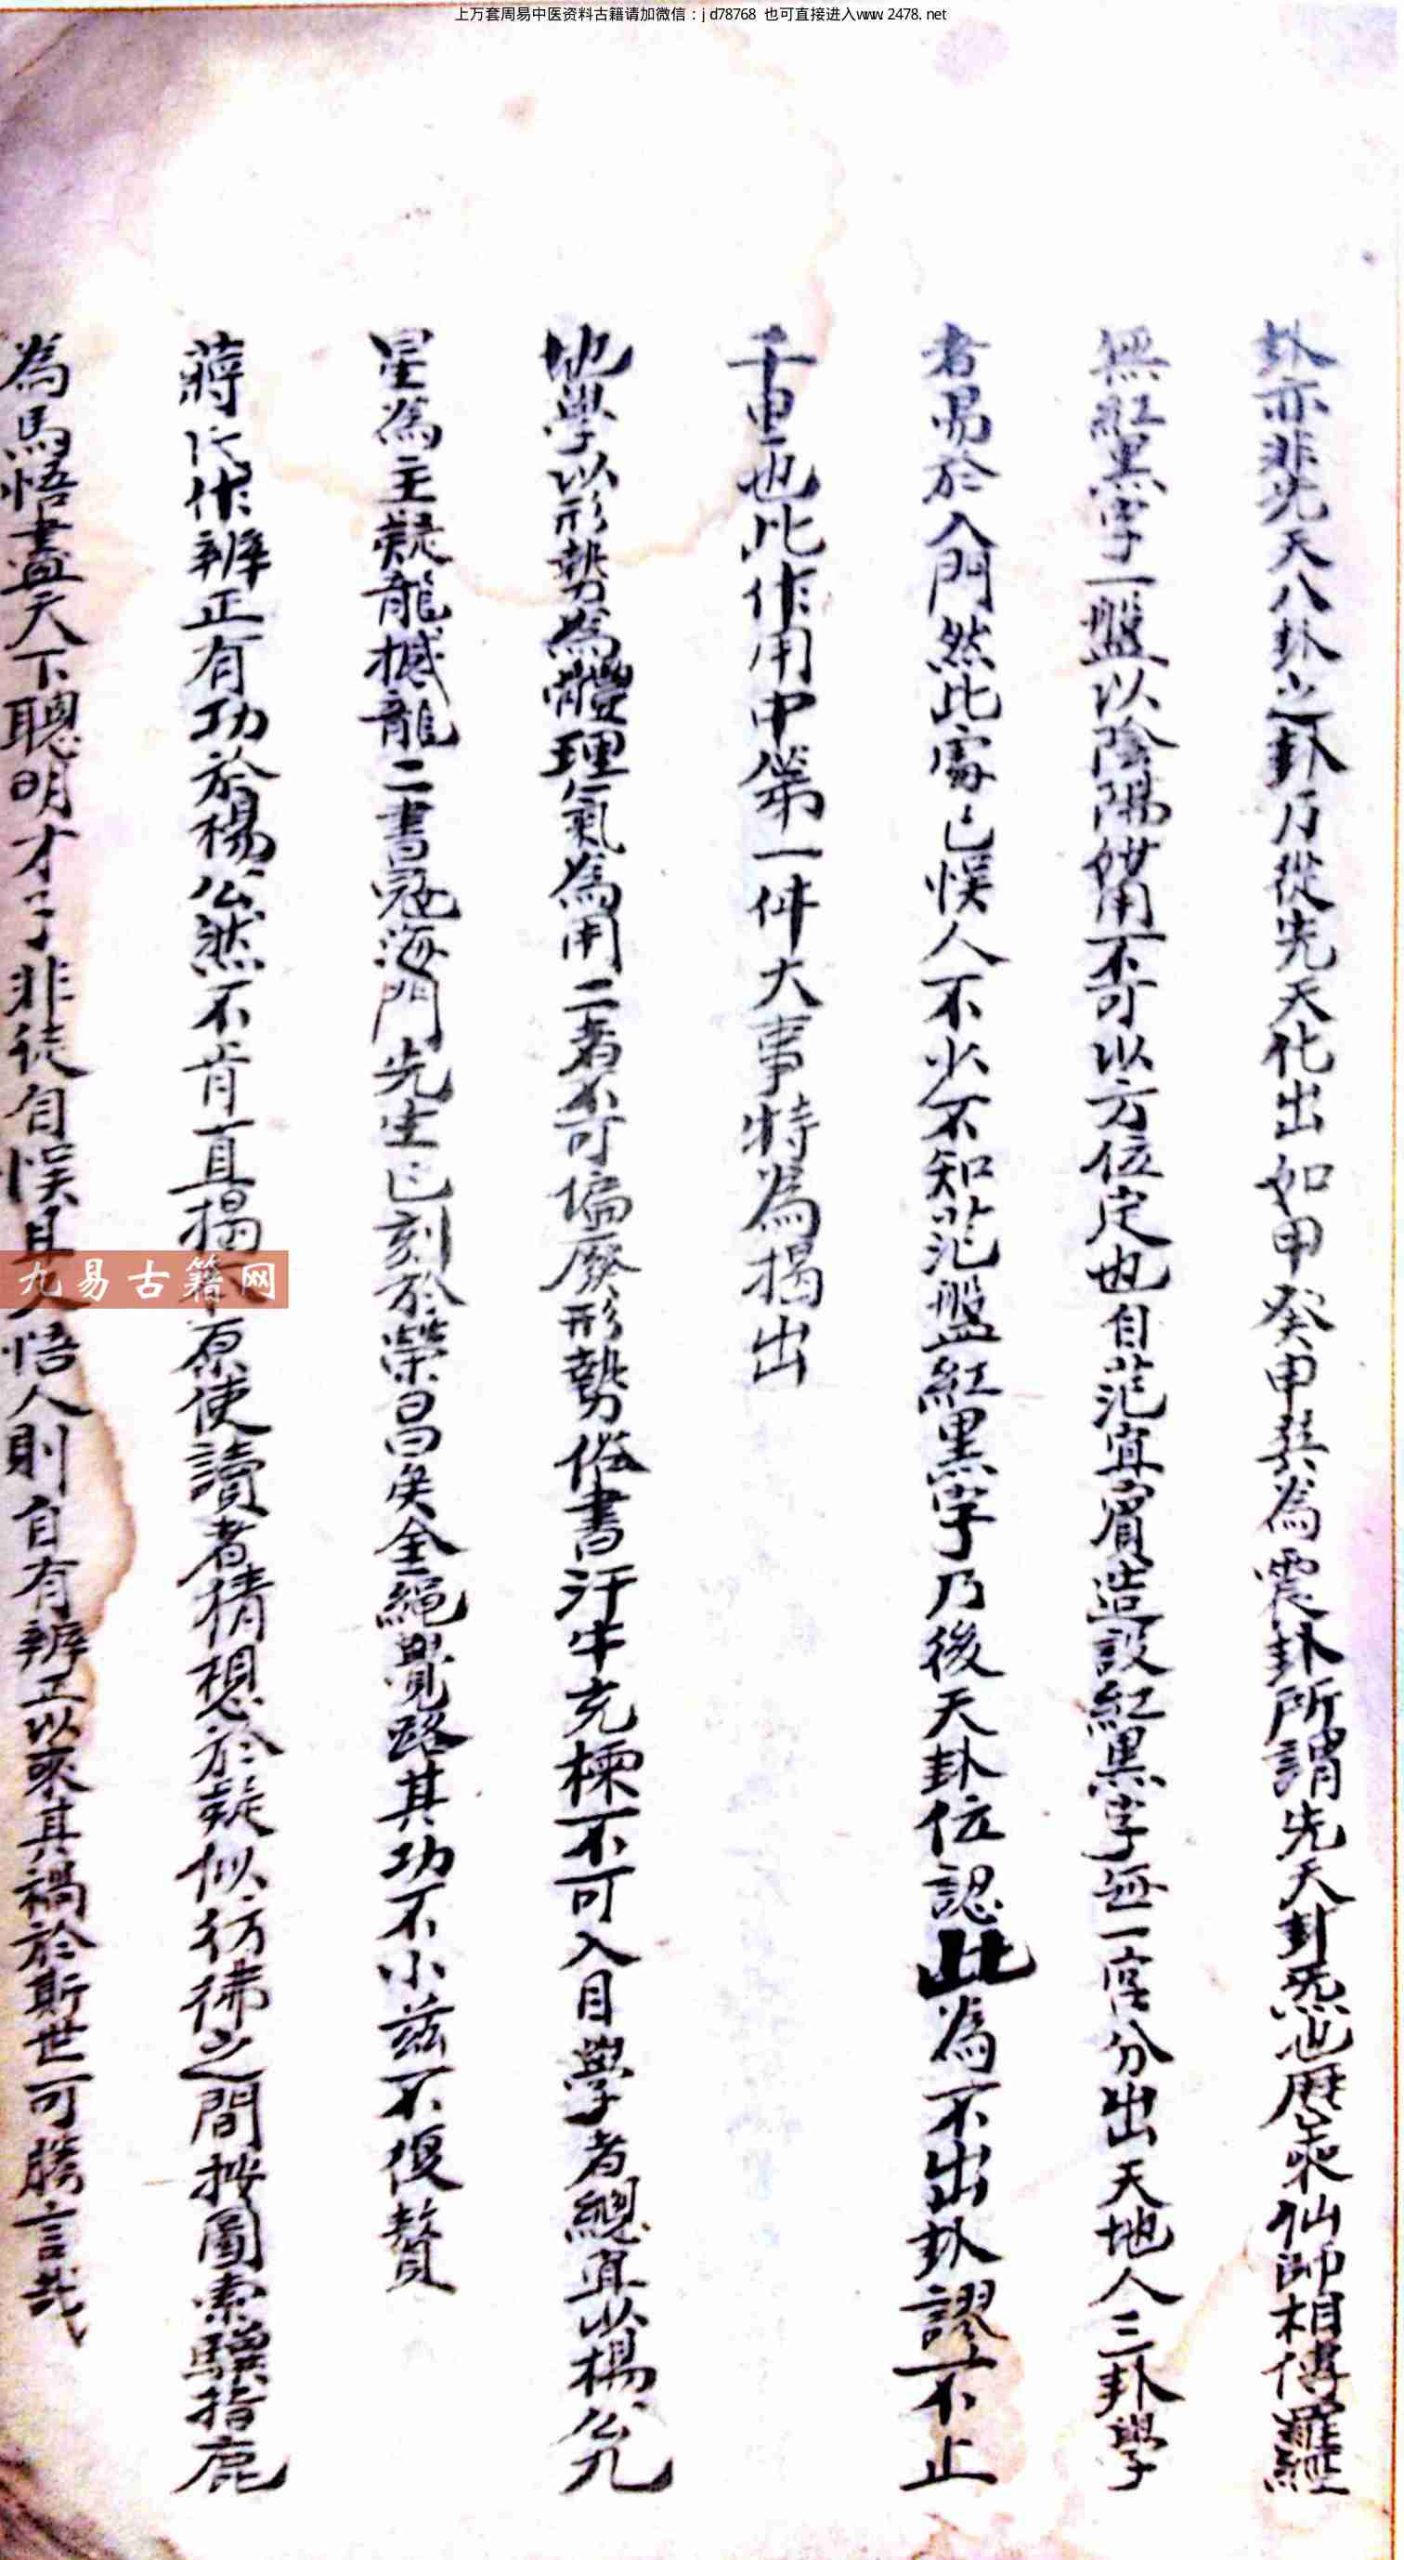 上万套周易中医资料古籍请加微信：jd78768 也可直接进入www.2478.net
卦亦非先天八卦之卦乃從先天化出如甲癸申巽為震卦所謂先天卦炁也歷來仙師相傳羅經
無紅黑字一盤以陰陽錯用不可以方位定也自范宜賓造設紅黑字每一宮分出天地人三卦學
者易於入門然此處已悮人不少不知范盤紅黑字乃後天卦位認此為不出卦謬不止
千里也此作用中第一件大事特為揭出
地學以形勢為體理氣為用二者不可偏廢形勢俗書汗牛充楝不可入目學者總宜以楊公九
星為主疑龍撼龍二書冠海門先生已刻於榮昌矣全繩覺路其功不小茲不復贅
蔣氏作辨正有功於楊公然不肯直揭原使讀者猜想於疑似彷彿之間按圖索驥指鹿
為馬悟盡天下聰明才子非徒自悮且人悟人則自有辨正以來其禍於斯世可勝言哉
九易古籍网